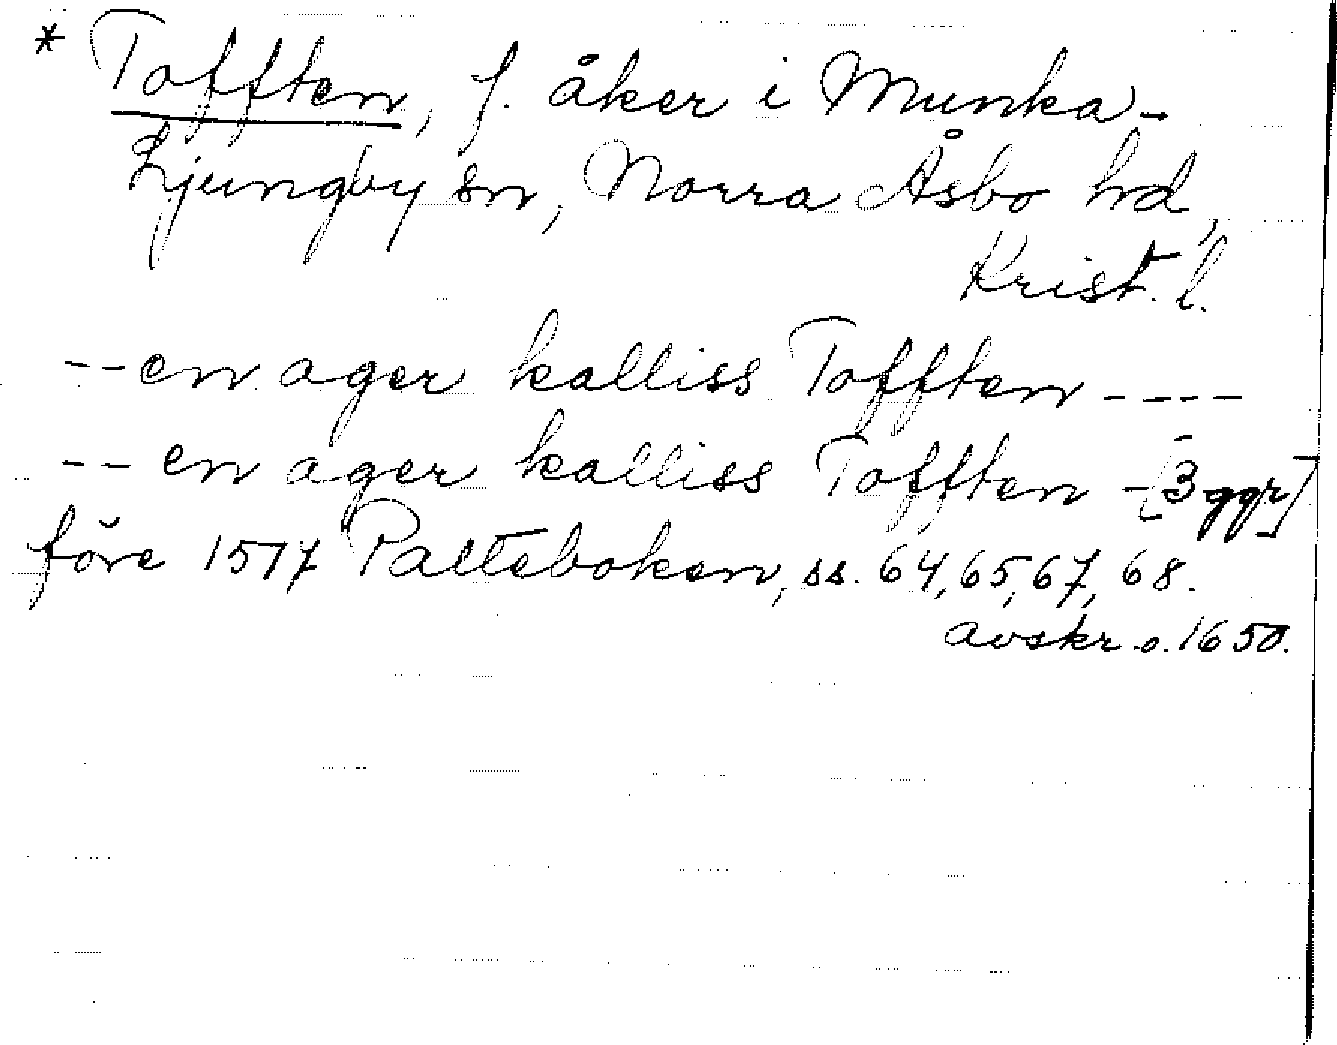 * Tofften, f. åker i Munka-
Ljungby sn, Norra Åsbo hd,
Krist. l.
--en ager kalliss Tofften ----
-- en ager kalliss Tofften - [3 ggr]
före 1517 Palteboken, ss. 64, 65, 67, 68.
avskr. o. 1650.